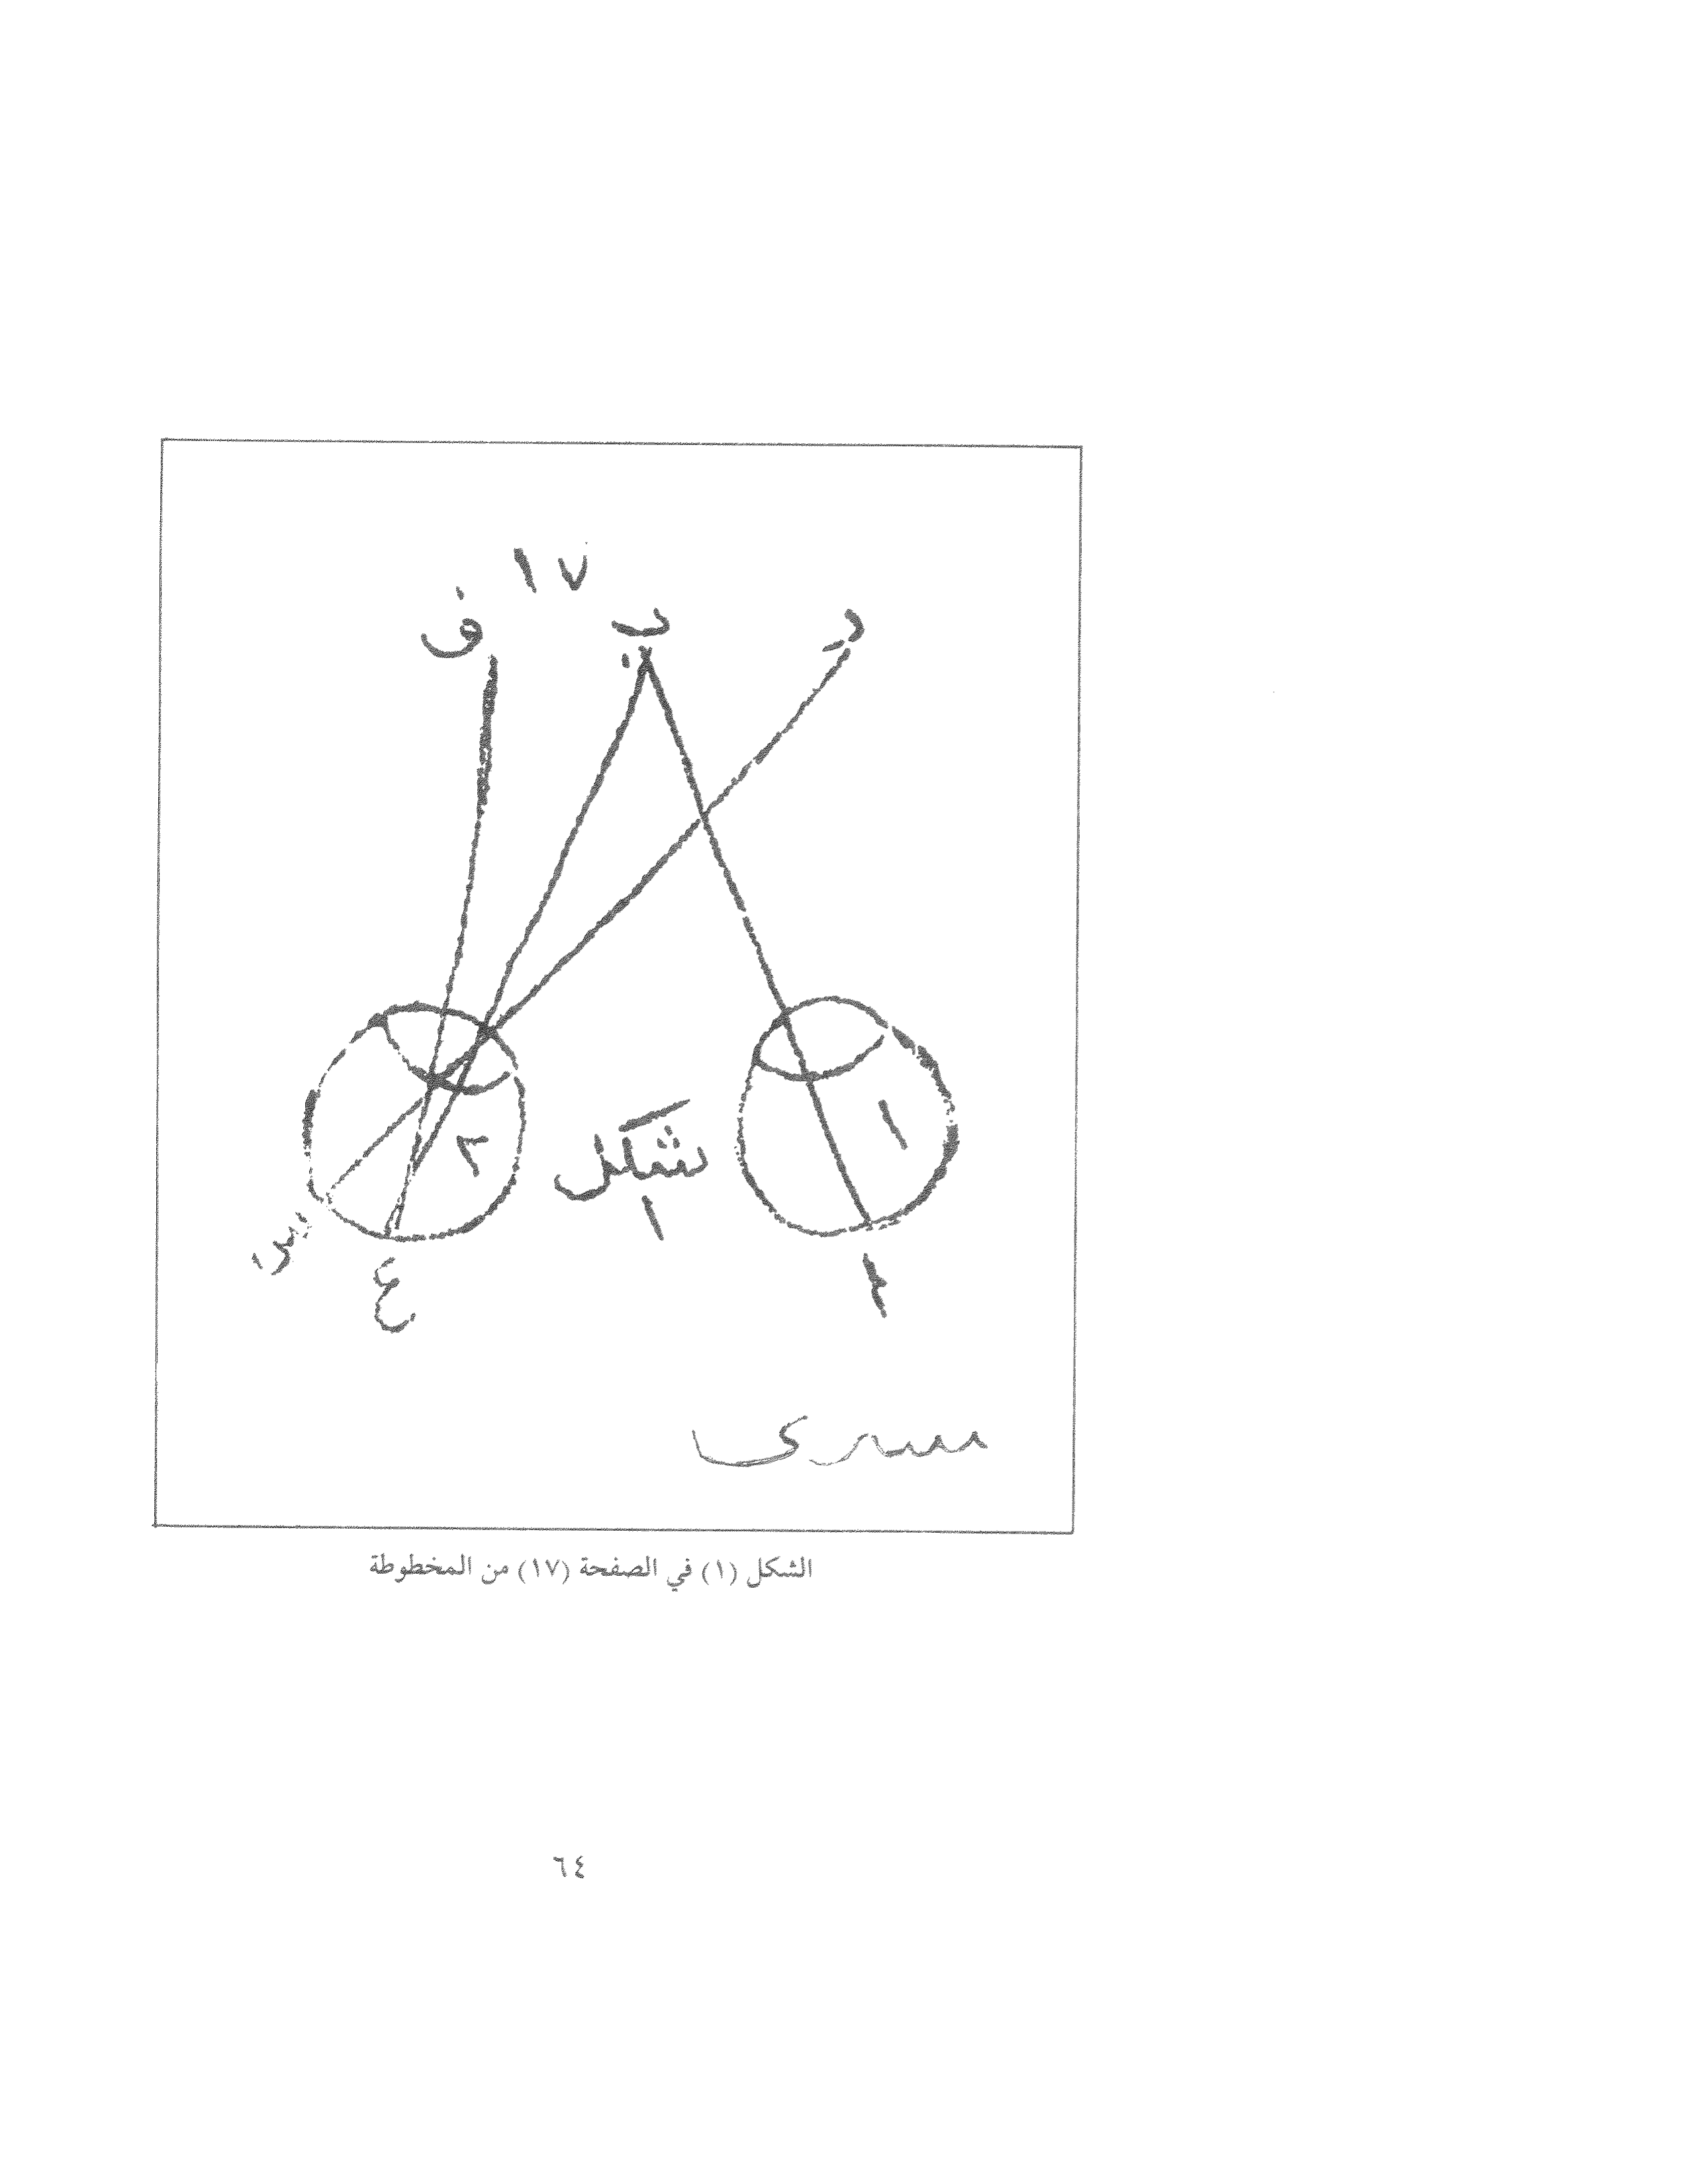 ١٧
د ب ف
شكل
١
١
٢
ع
يسرى
الشكل (١) في الصفحة (١٧) من المخطوطة
٦٤